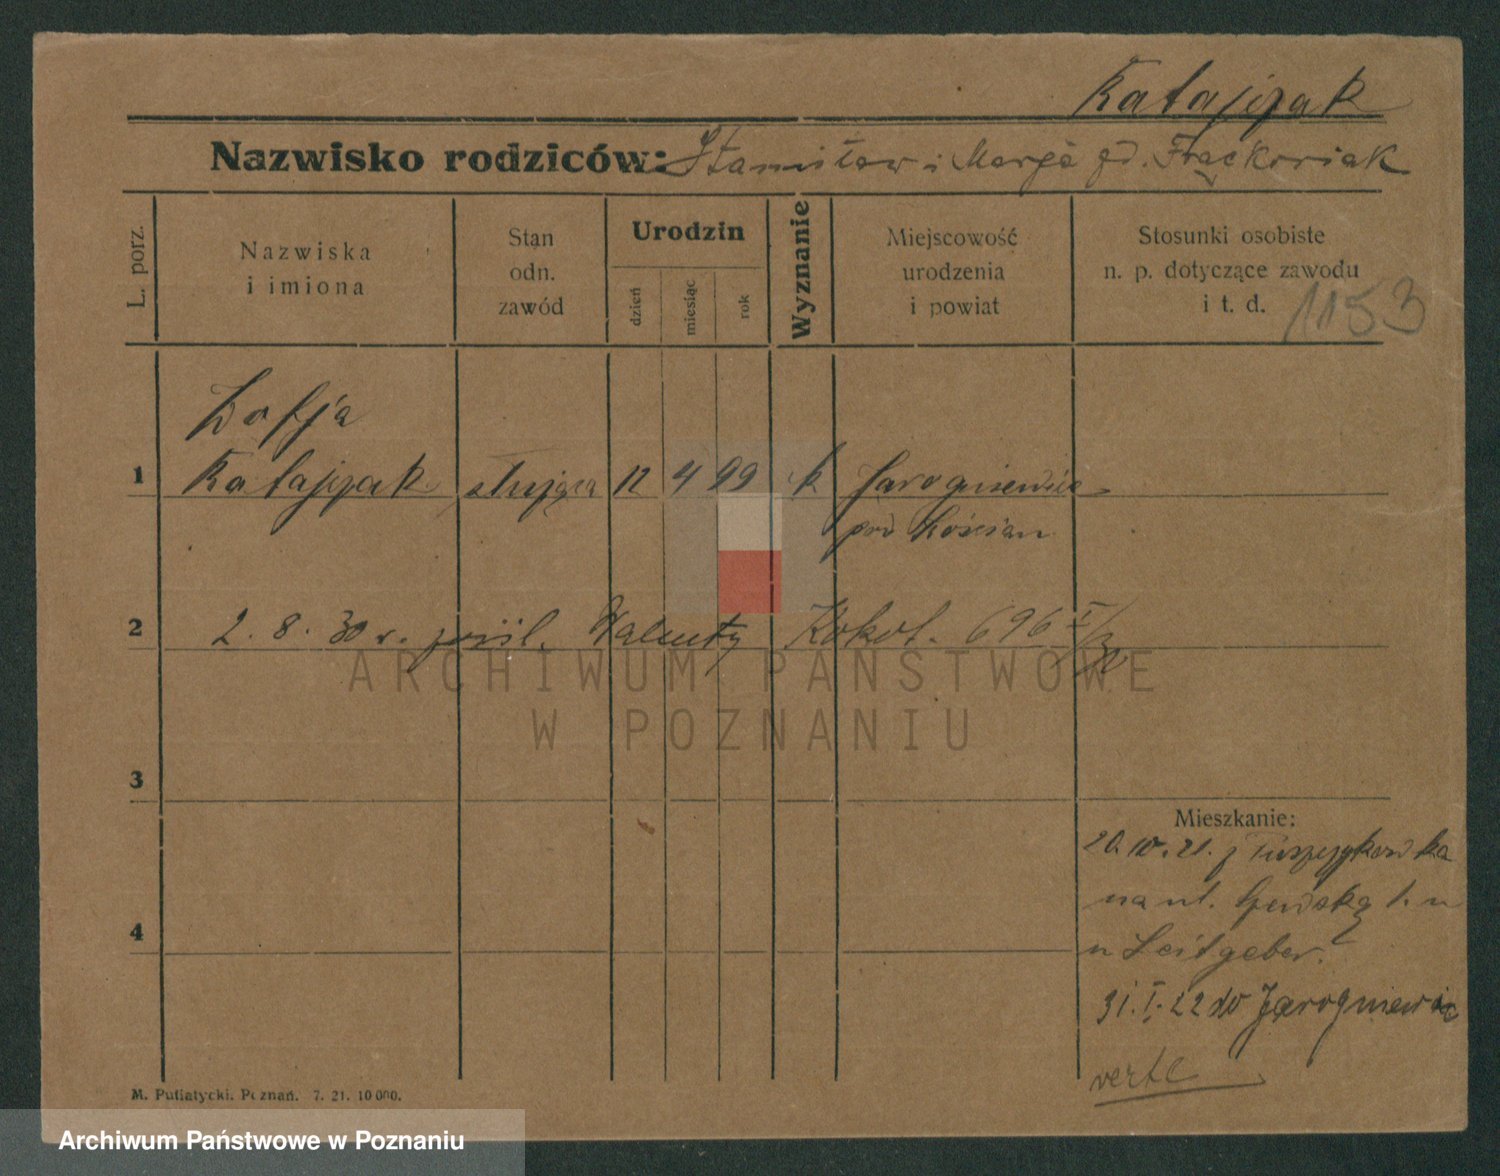 Katajczak
Nazwisko rodziców: Stanisław i Marja zd. Frąckowiak
L. porz.
Nazwiska
i imiona
Stan
odn.
zawód
Urodzin
dzień
miesiąc
rok
Wyznanie
Miejscowość
urodzenia
i powiat
Stosunki osobiste
n. p. dotyczące zawodu
i t. d.
1153
Zofja
1 Katajczak służąca 12 4 99 k Jarogniewice
pow Kościan
2 2. 8. 30 r. pośl. Walenty Kokot. 696 I/30
ARCHIWUM PAŃSTWOWE
W POZNANIU
3
Mieszkanie:
20. 10. 21. z
na ul. u
4
u Leitgeber.
31. I. 22 do Jarogniewic
verte
M. Putiatycki. Poznań. 7. 21. 10 000.
Archiwum Państwowe w Poznaniu